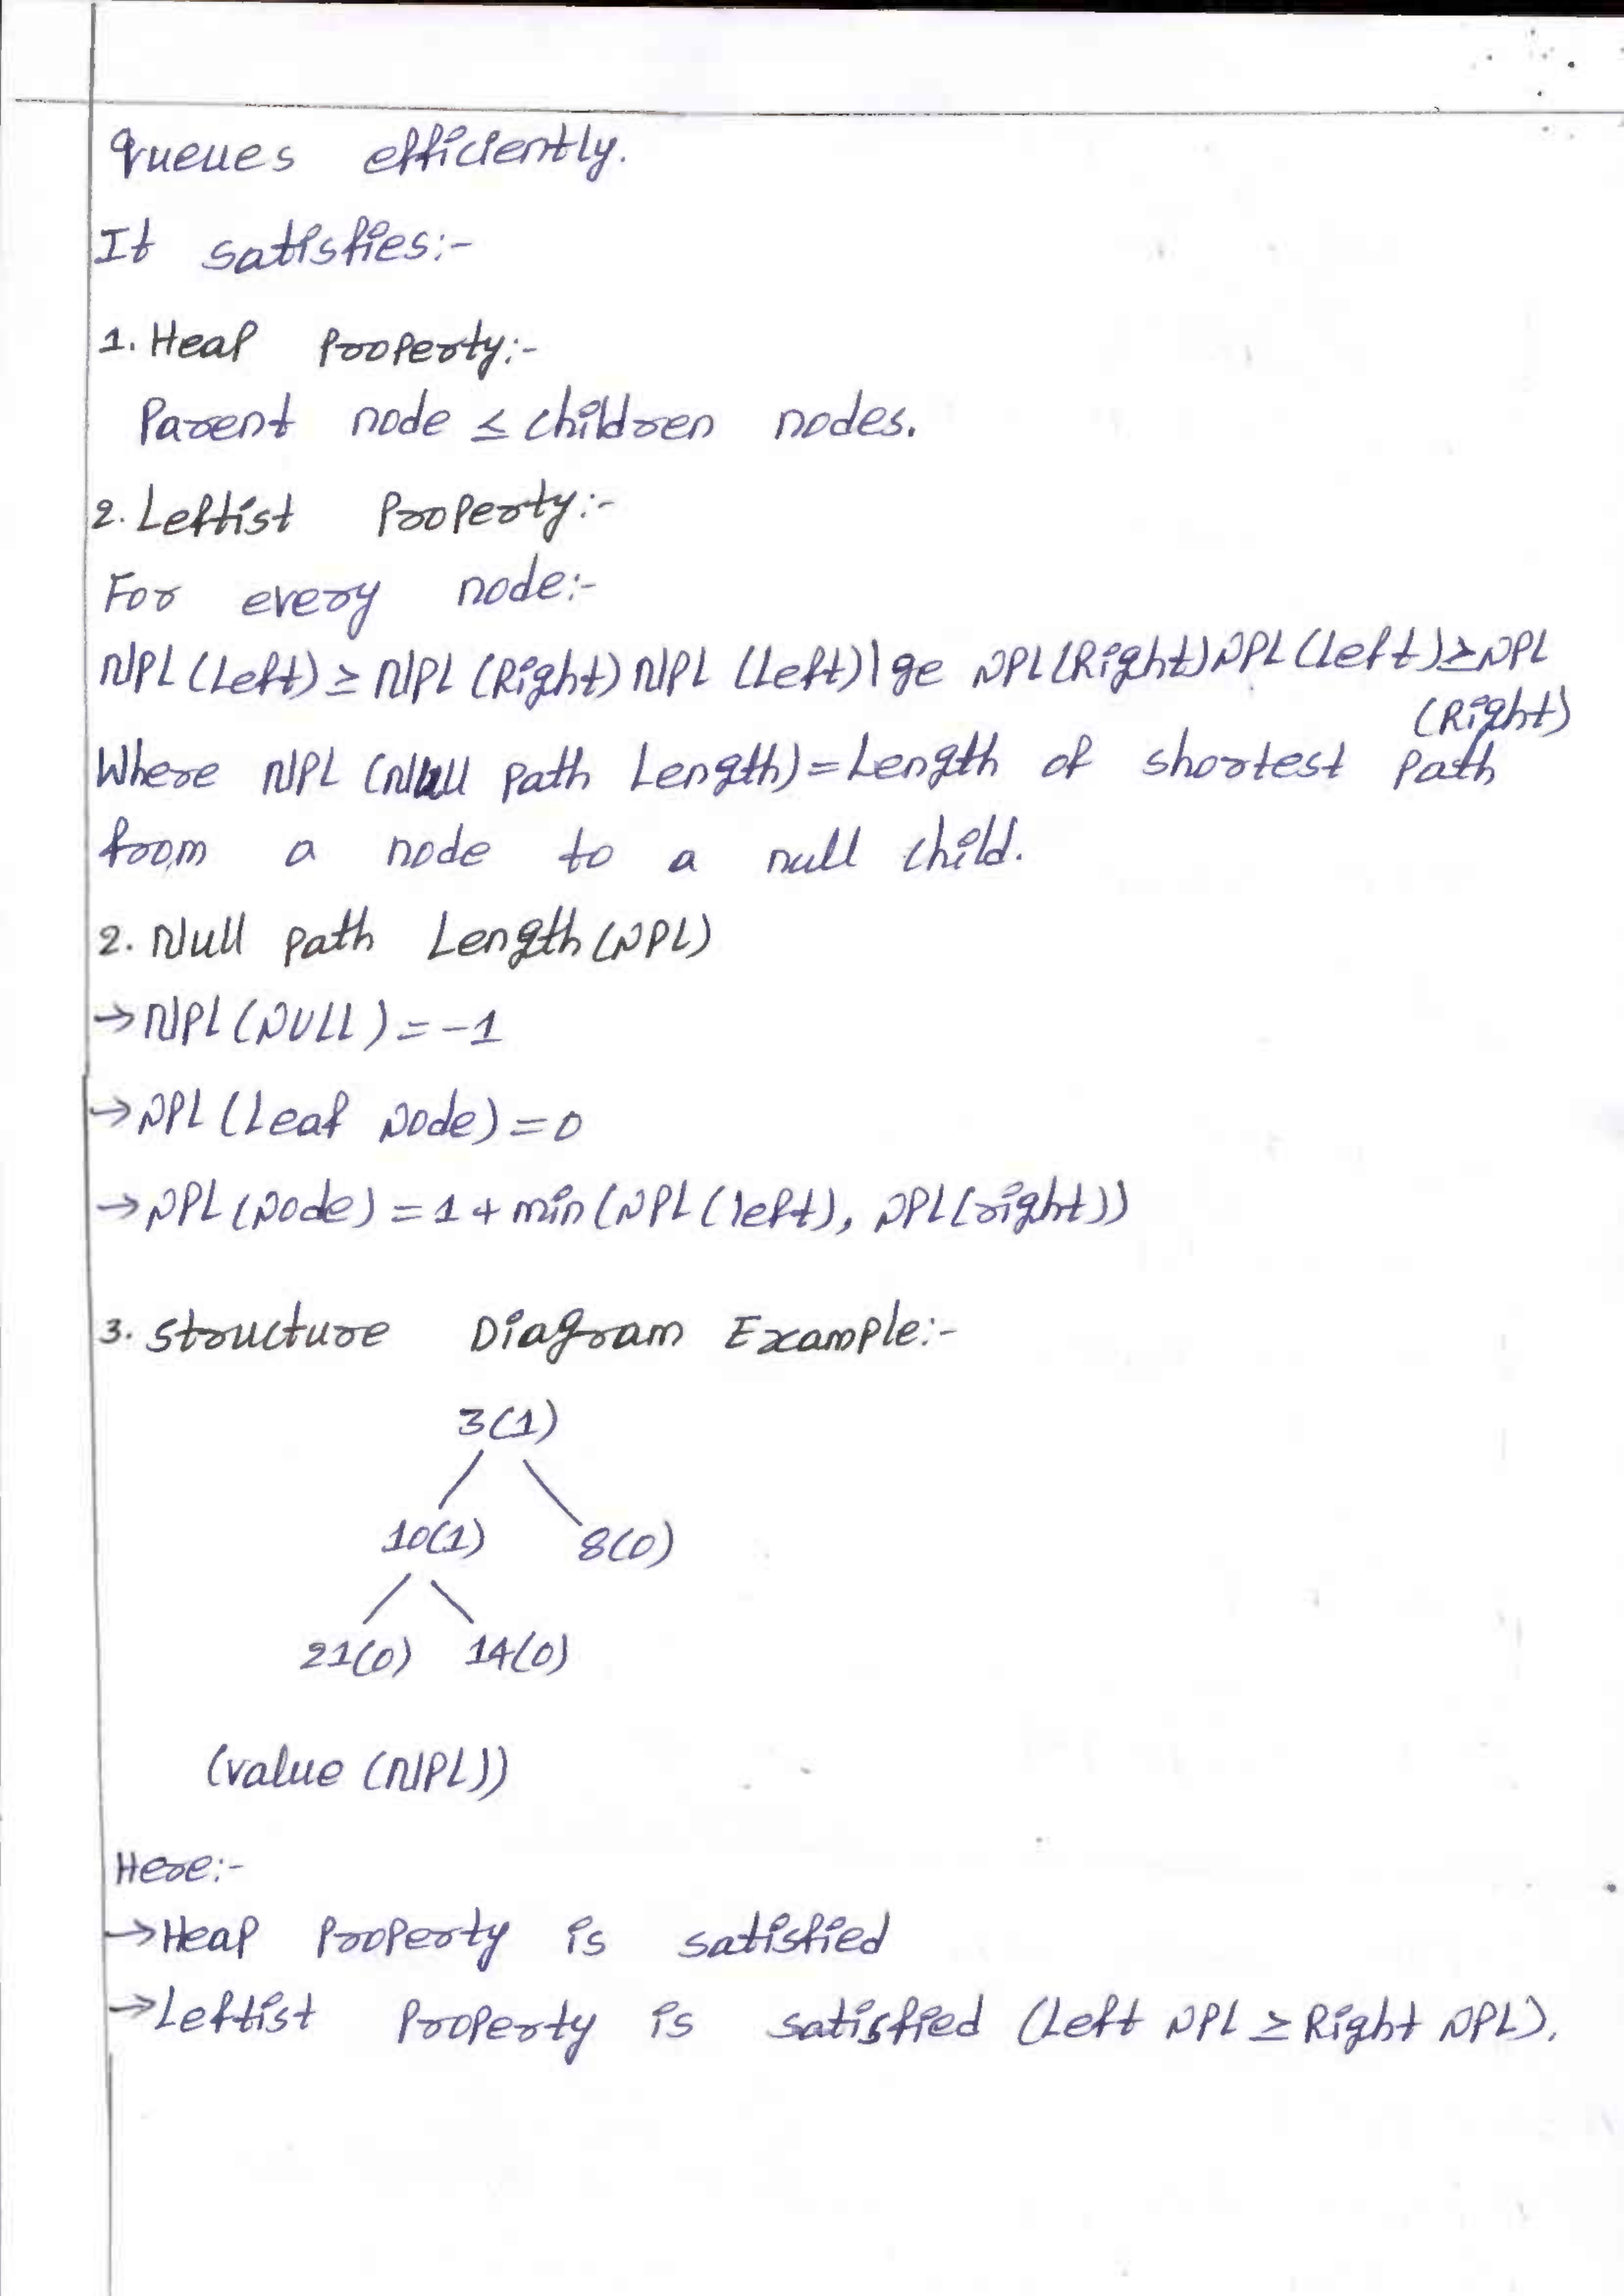 Queues efficiently.
It satisfies:-
1. Heap Property:-
Parent node ≤ children nodes.
2. Leftist Property:-
For every node:-
NPL (Left) ≥ NPL (Right) NPL (Left)\ge NPL (Right) NPL (Left) ≥ NPL
(Right)
Where NPL (Null Path Length) = Length of shortest Path
from a node to a null child.
2. Null Path Length (NPL)
→ NPL (NULL) = -1
→ NPL (Leaf Node) = 0
→ NPL (Node) = 1 + min (NPL (left), NPL (right))
3. Structure Diagram Example:-
3(1)
10(1) 8(0)
21(0) 14(0)
(value (NPL))
Here:-
→ Heap Property is satisfied
→ Leftist Property is satisfied (Left NPL ≥ Right NPL).